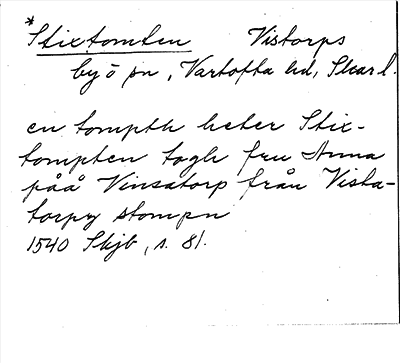 *Stixtomten Vistorps
by o sn, Vartofta hd, Skar l.
en tompth heter Stix-
tompten togh fru Anna
påå Vinsatorp från Vista-
torpz stompn
1540 Skjb, s. 81.